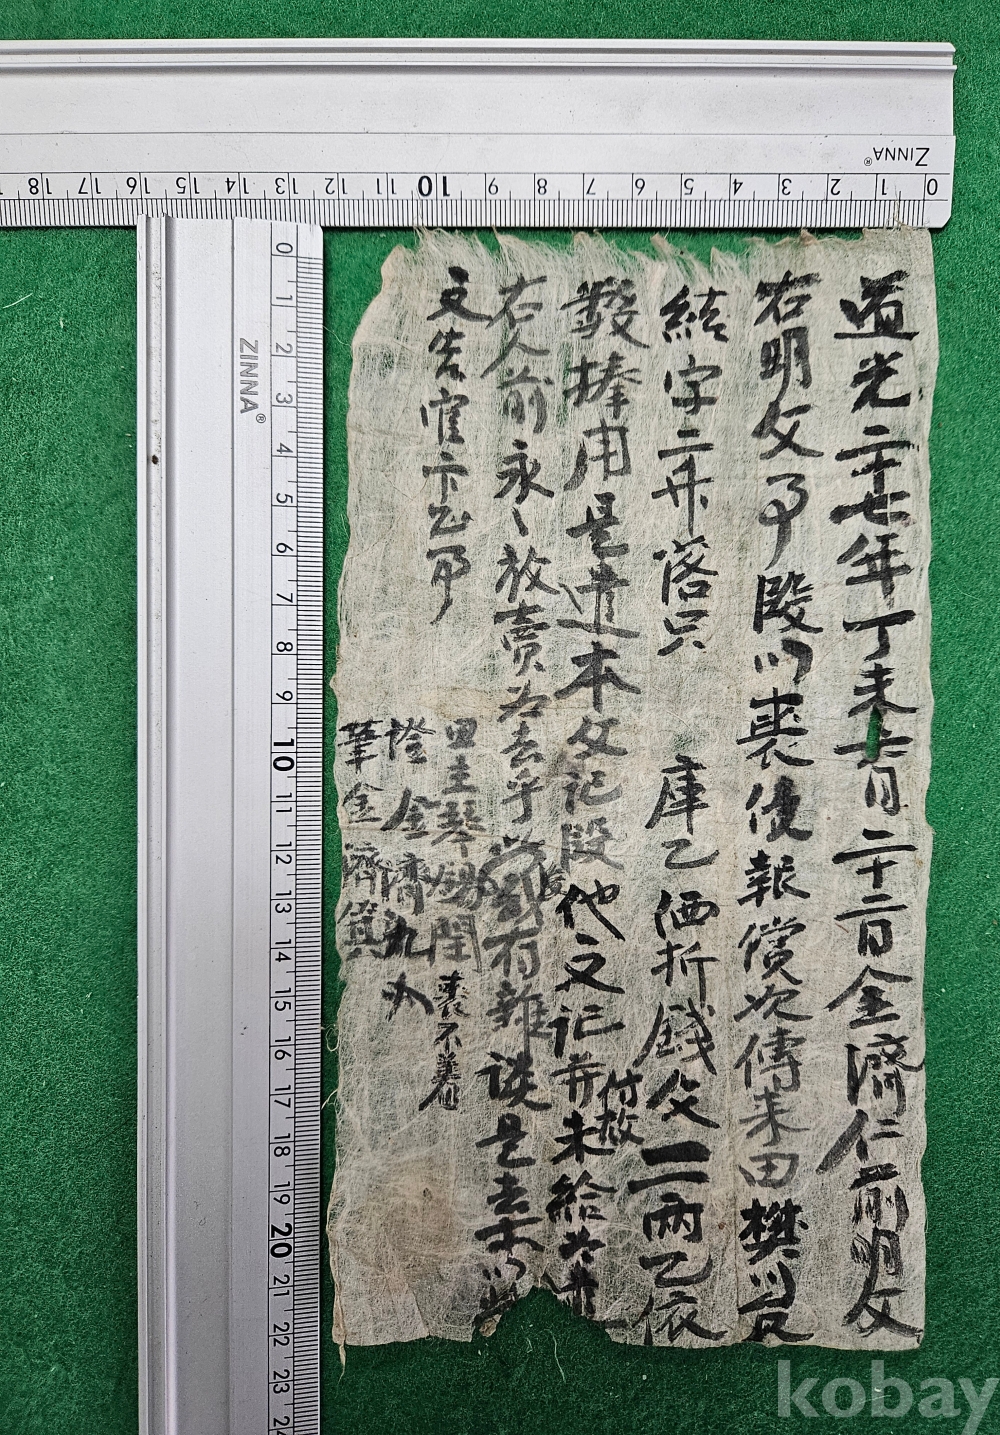 道光二十七年丁未七月二十二日金濟仁前明文
右明文事段以喪債報償次傳來田樊川員
結字二卜落只 庫乙価折錢文二兩乙依
數捧用是遣本文記段他文記并付故未給为
右人前永〻放賣为去乎 後 或有雜談是去等以此
文告官卞正事
田主琴錫閏喪不着
證金濟九
筆金濟箕
ZINNA®
0 1 2 3 4 5 6 7 8 9 10 11 12 13 14 15 16 17 18
ZINNA®
0 1 2 3 4 5 6 7 8 9 10 11 12 13 14 15 16 17 18 19 20 21 22 23 24
kobay